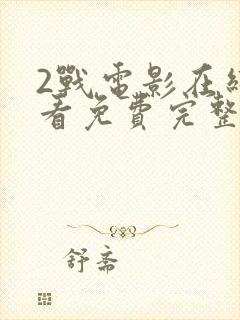 2戰電影在線
看免費完整
舒斋